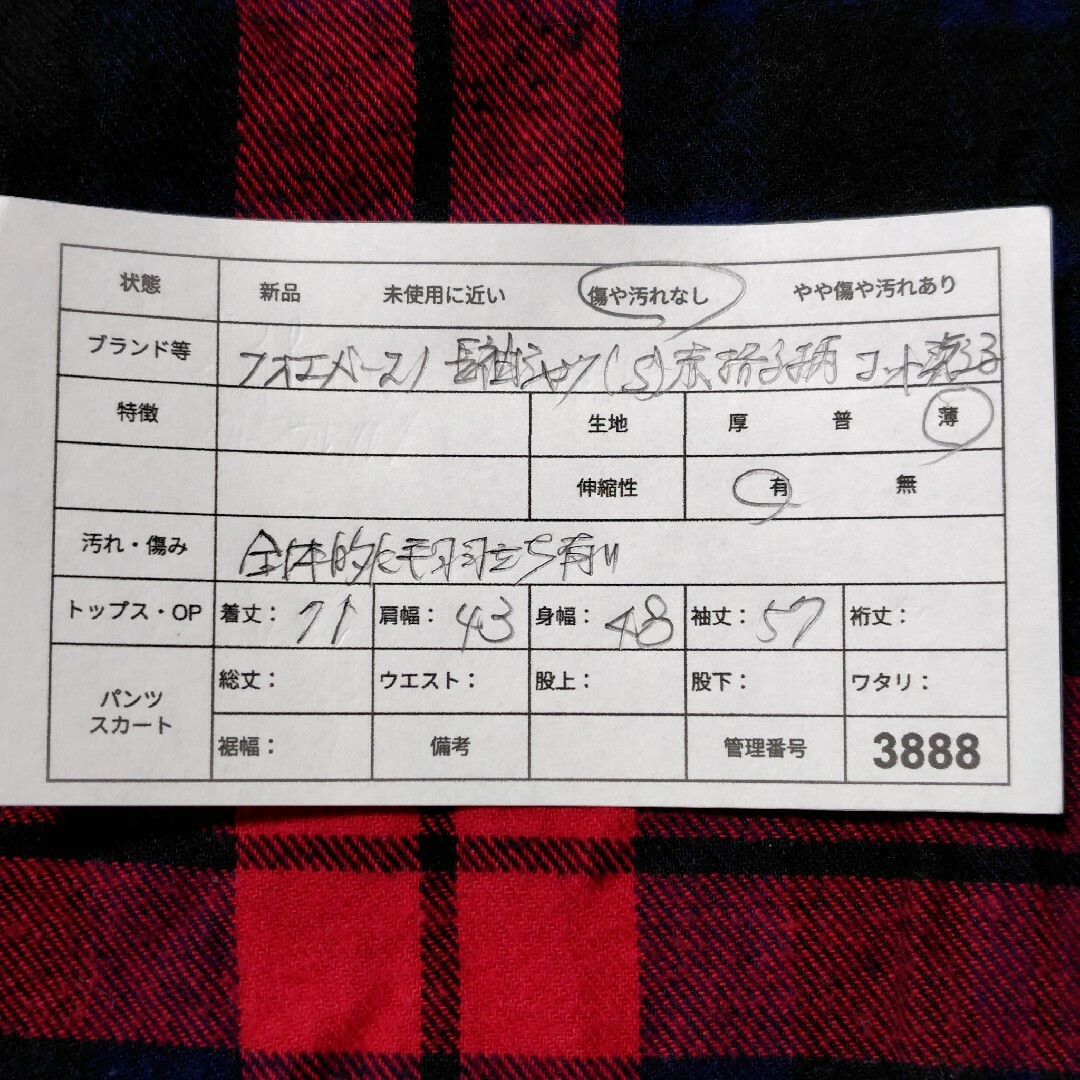 状態 新品 未使用に近い 傷や汚れなし やや傷や汚れあり
ブランド等 フォエバー21 長袖シャツ(S)赤格子柄 コットン
特徴 生地 厚 普 薄
伸縮性 有 無
汚れ・傷み 全体的に毛羽立ち有り
トップス・OP 着丈: 71 肩幅: 43 身幅: 48 袖丈: 57 裄丈:
パンツ スカート 総丈: ウエスト: 股上: 股下: ワタリ:
裾幅: 備考 管理番号 3888